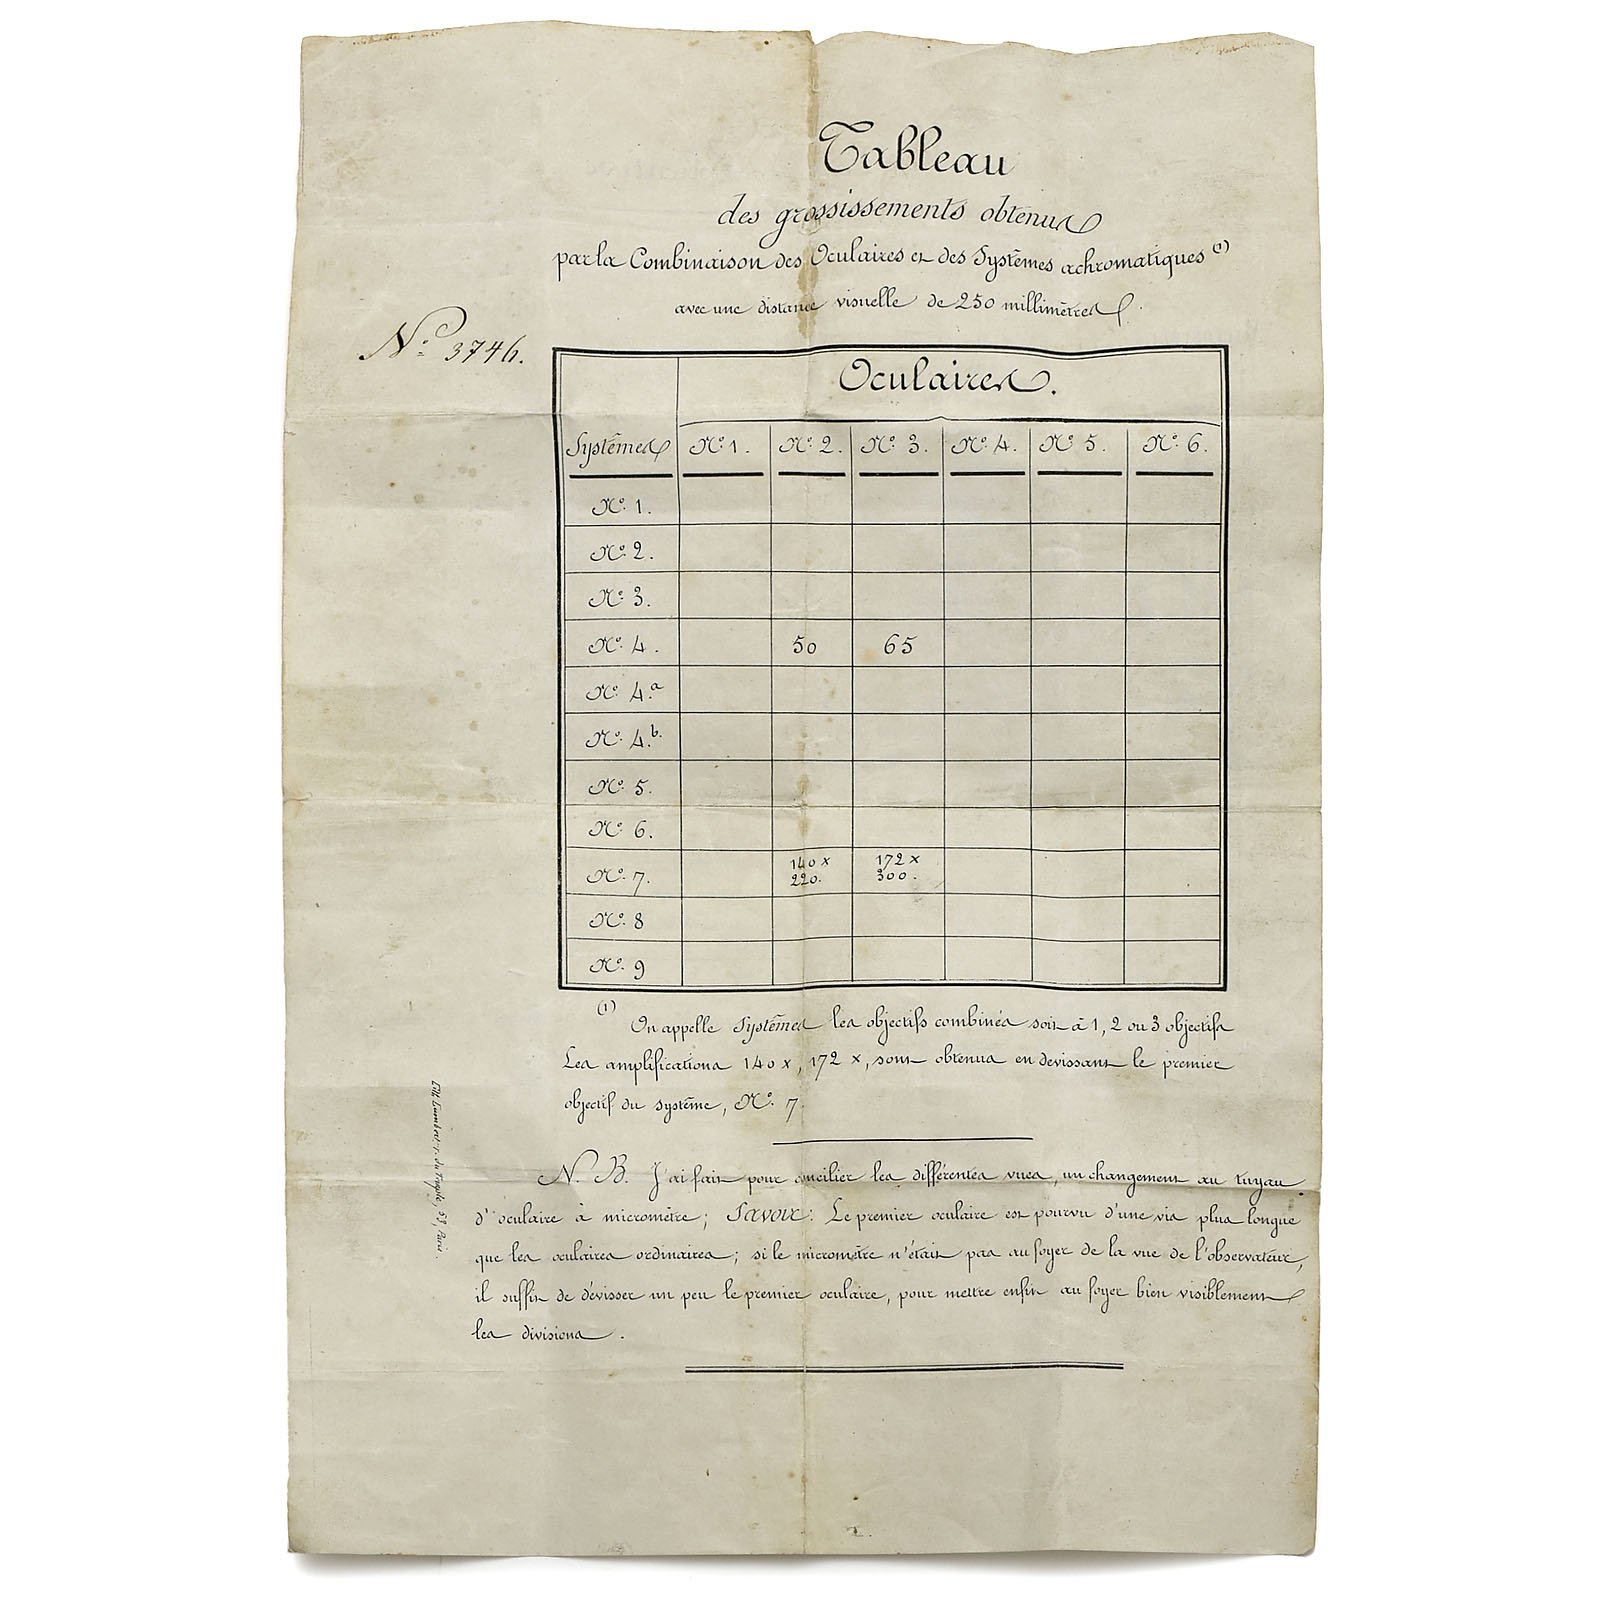 Tableau
des grossissements obtenus
par la Combinaison des Oculaires et des Systêmes achromatiques (1)
avec une distance visuelle de 250 millimètres.
No. 3746.
Oculaires.
Systêmes No. 1. No. 2. No. 3. No. 4. No. 5. No. 6.
No. 1.
No. 2.
No. 3.
No. 4. 50 65
No. 4.a
No. 4.b.
No. 5.
No. 6.
No. 7. 140 x 220. 172 x 300.
No. 8
No. 9
(1) On appelle Systêmes les objectifs combinés soit à 1, 2 ou 3 objectifs
Les amplifications 140 x, 172 x, sont obtenus en devissant le premier
objectif du systême, No. 7.
N. B. J'ai fait pour concilier les différentes vues, un changement au tuyau
d'oculaire à micromètre; Savoir: Le premier oculaire est pourvu d'une vis plus longue
que les oculaires ordinaires; si le micromètre n'était pas au foyer de la vue de l'observateur,
il suffit de dévisser un peu le premier oculaire, pour mettre enfin au foyer bien visiblement
les divisions.
Lith Lambert, r. du Temple, 58, Paris.